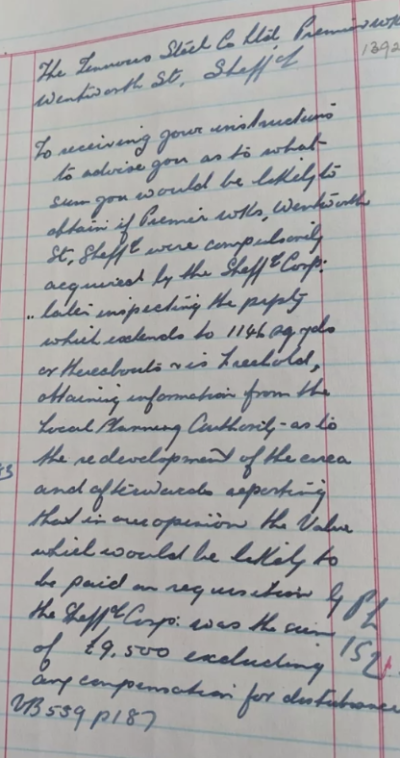 The Tenuous Steel Co Ltd. Premier Wks
1392
Wentworth St, Sheff'd
To receiving your instructions
to advise you as to what
sum you would be likely to
obtain if Premier Wks, Wentworth
St, Sheffd were compulsorily
acquired by the Sheffd Corp:
.. later inspecting the ppty
which extends to 1146 sq. yds
or thereabouts & is freehold,
obtaining information from the
Local Planning Authority - as to
the redevelopment of the area
and afterwards reporting
that in our opinion the Value
which would be likely to
be paid on requisition by
the Sheffd Corp: was the sum
of £9,500 excluding
any compensation for disturbance
VB 559 p187